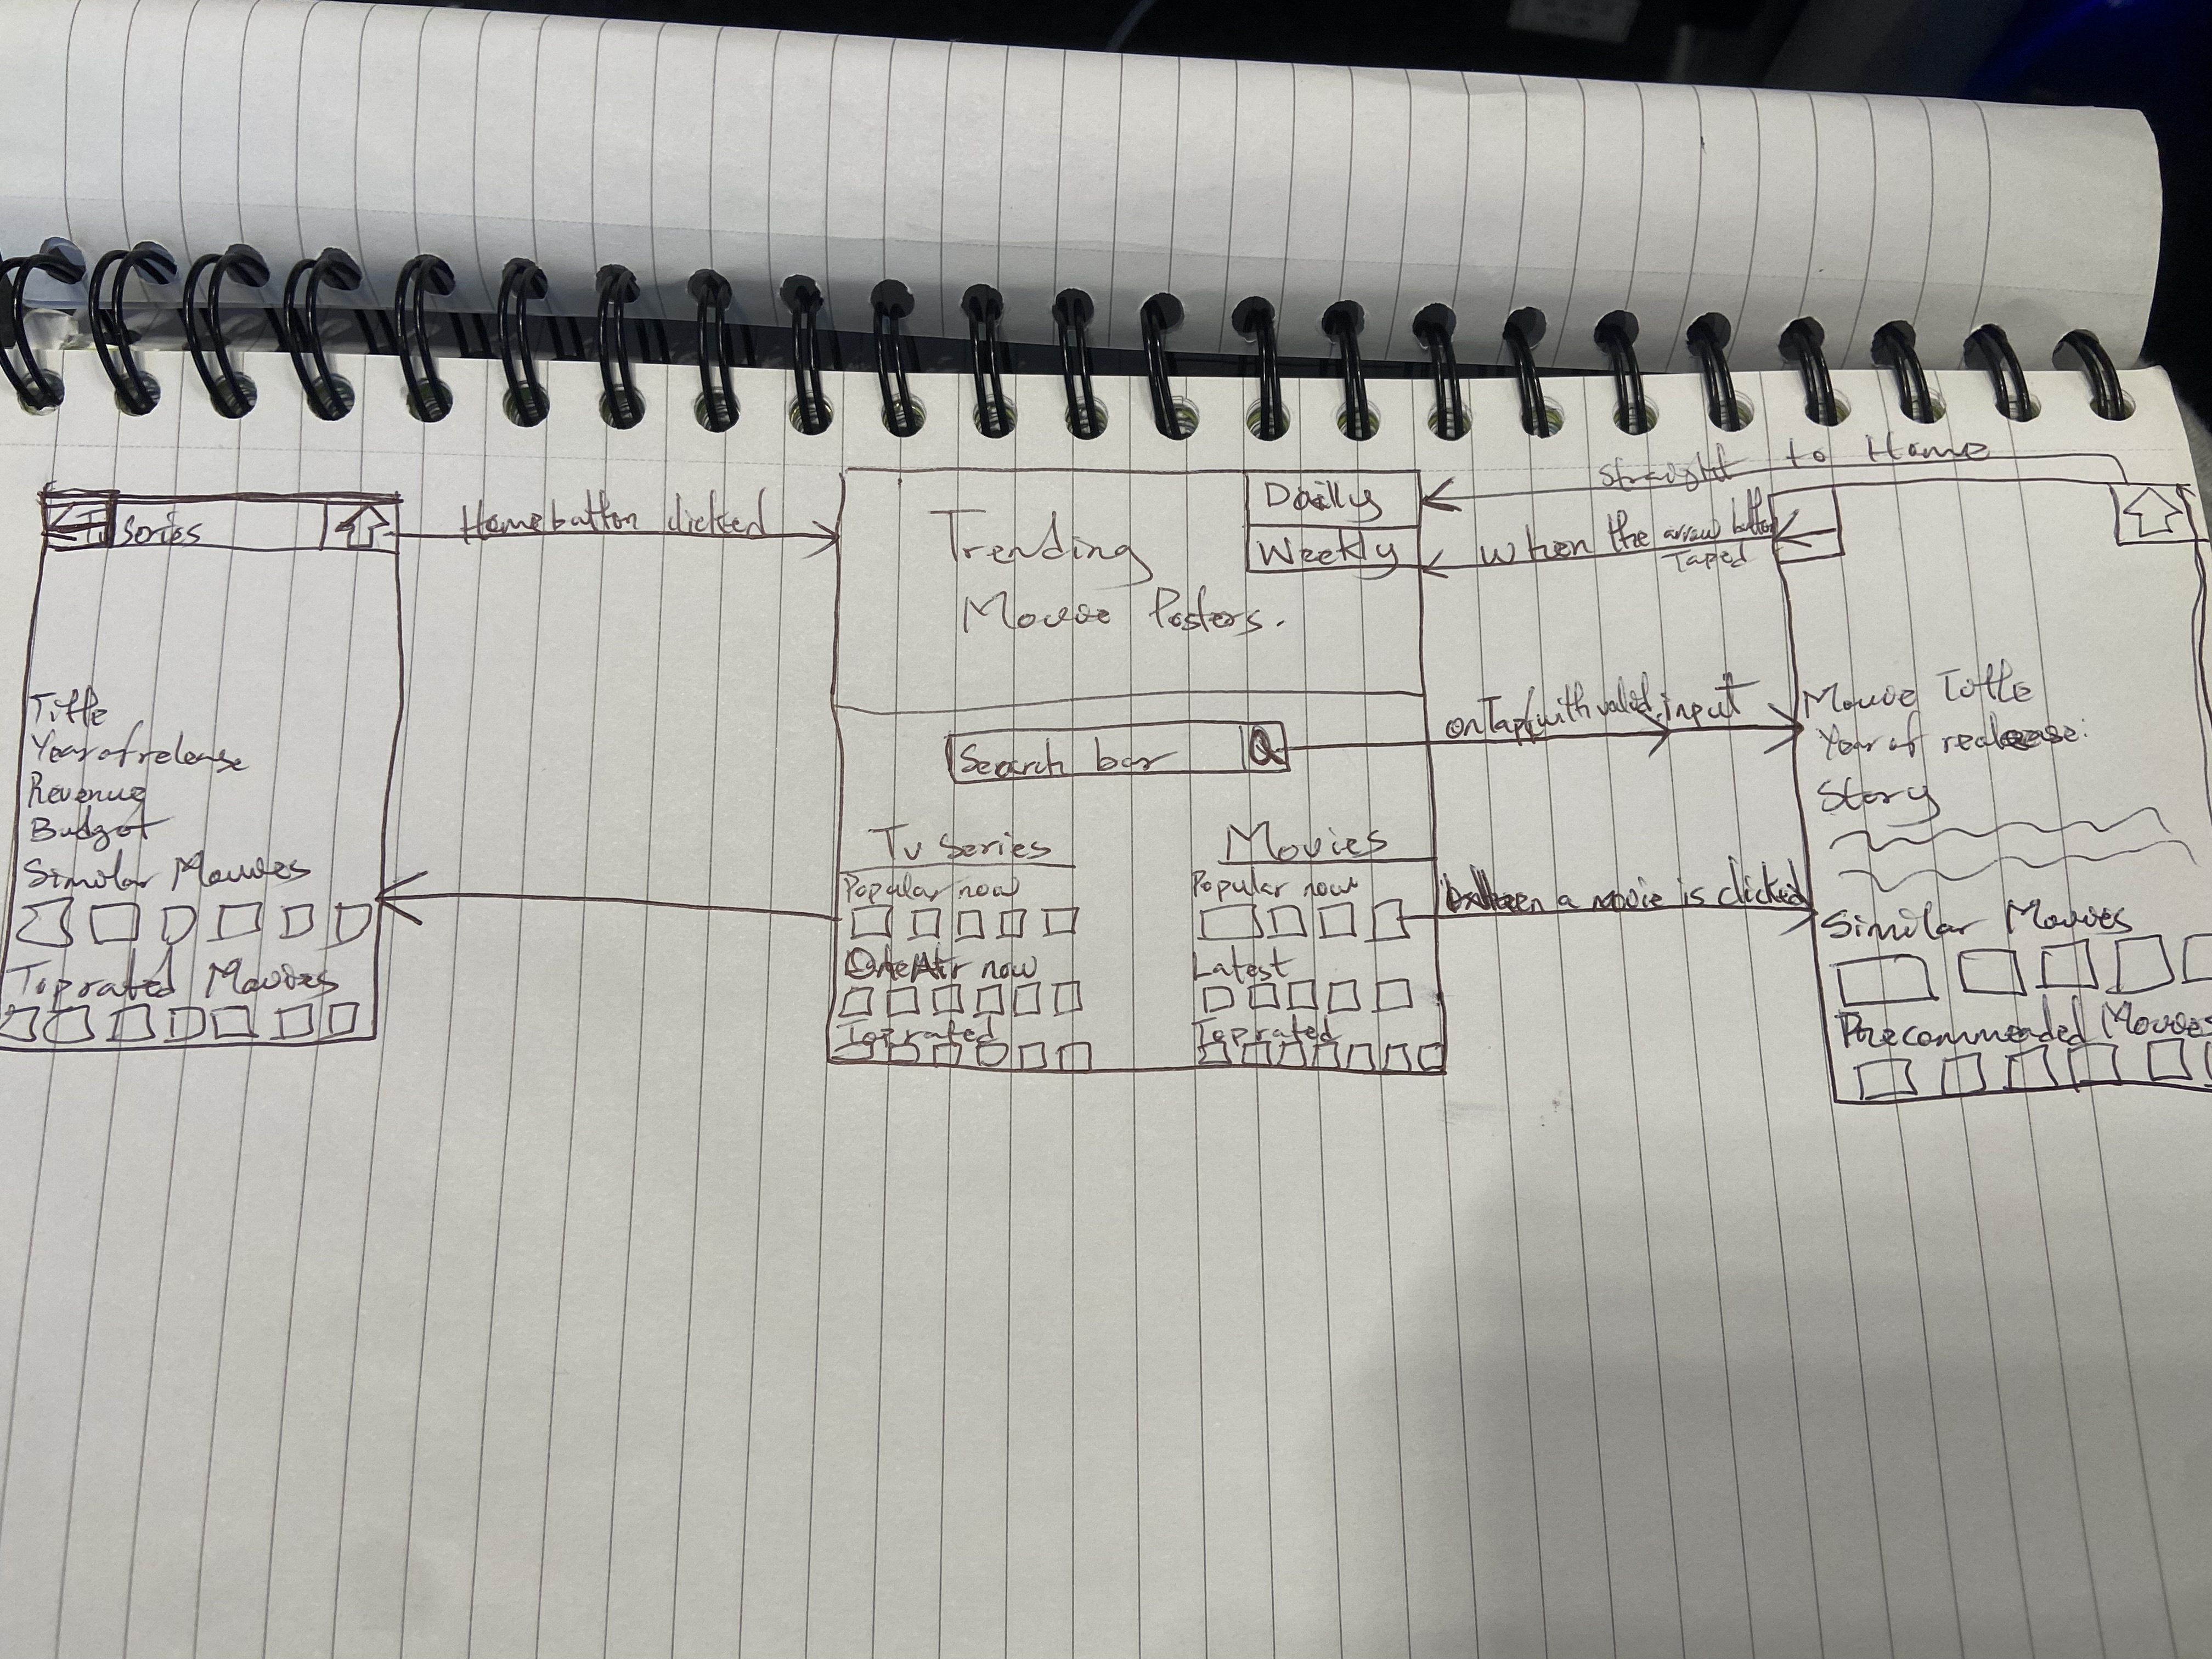 Series
Title
Year of release
Revenue
Budget
Similar Movies
Top rated Movies
Home button clicked
Trending
Movie Posters.
Daily
Weekly
Search bar
Tv Series
Popular now
On Air now
Top rated
Movies
Popular now
Latest
Top rated
Straight to Home
When the arrow button
Taped
onTap with valid input
when a movie is clicked
Movie Title
Year of realease:
Story
Similar Movies
Recommended Movies